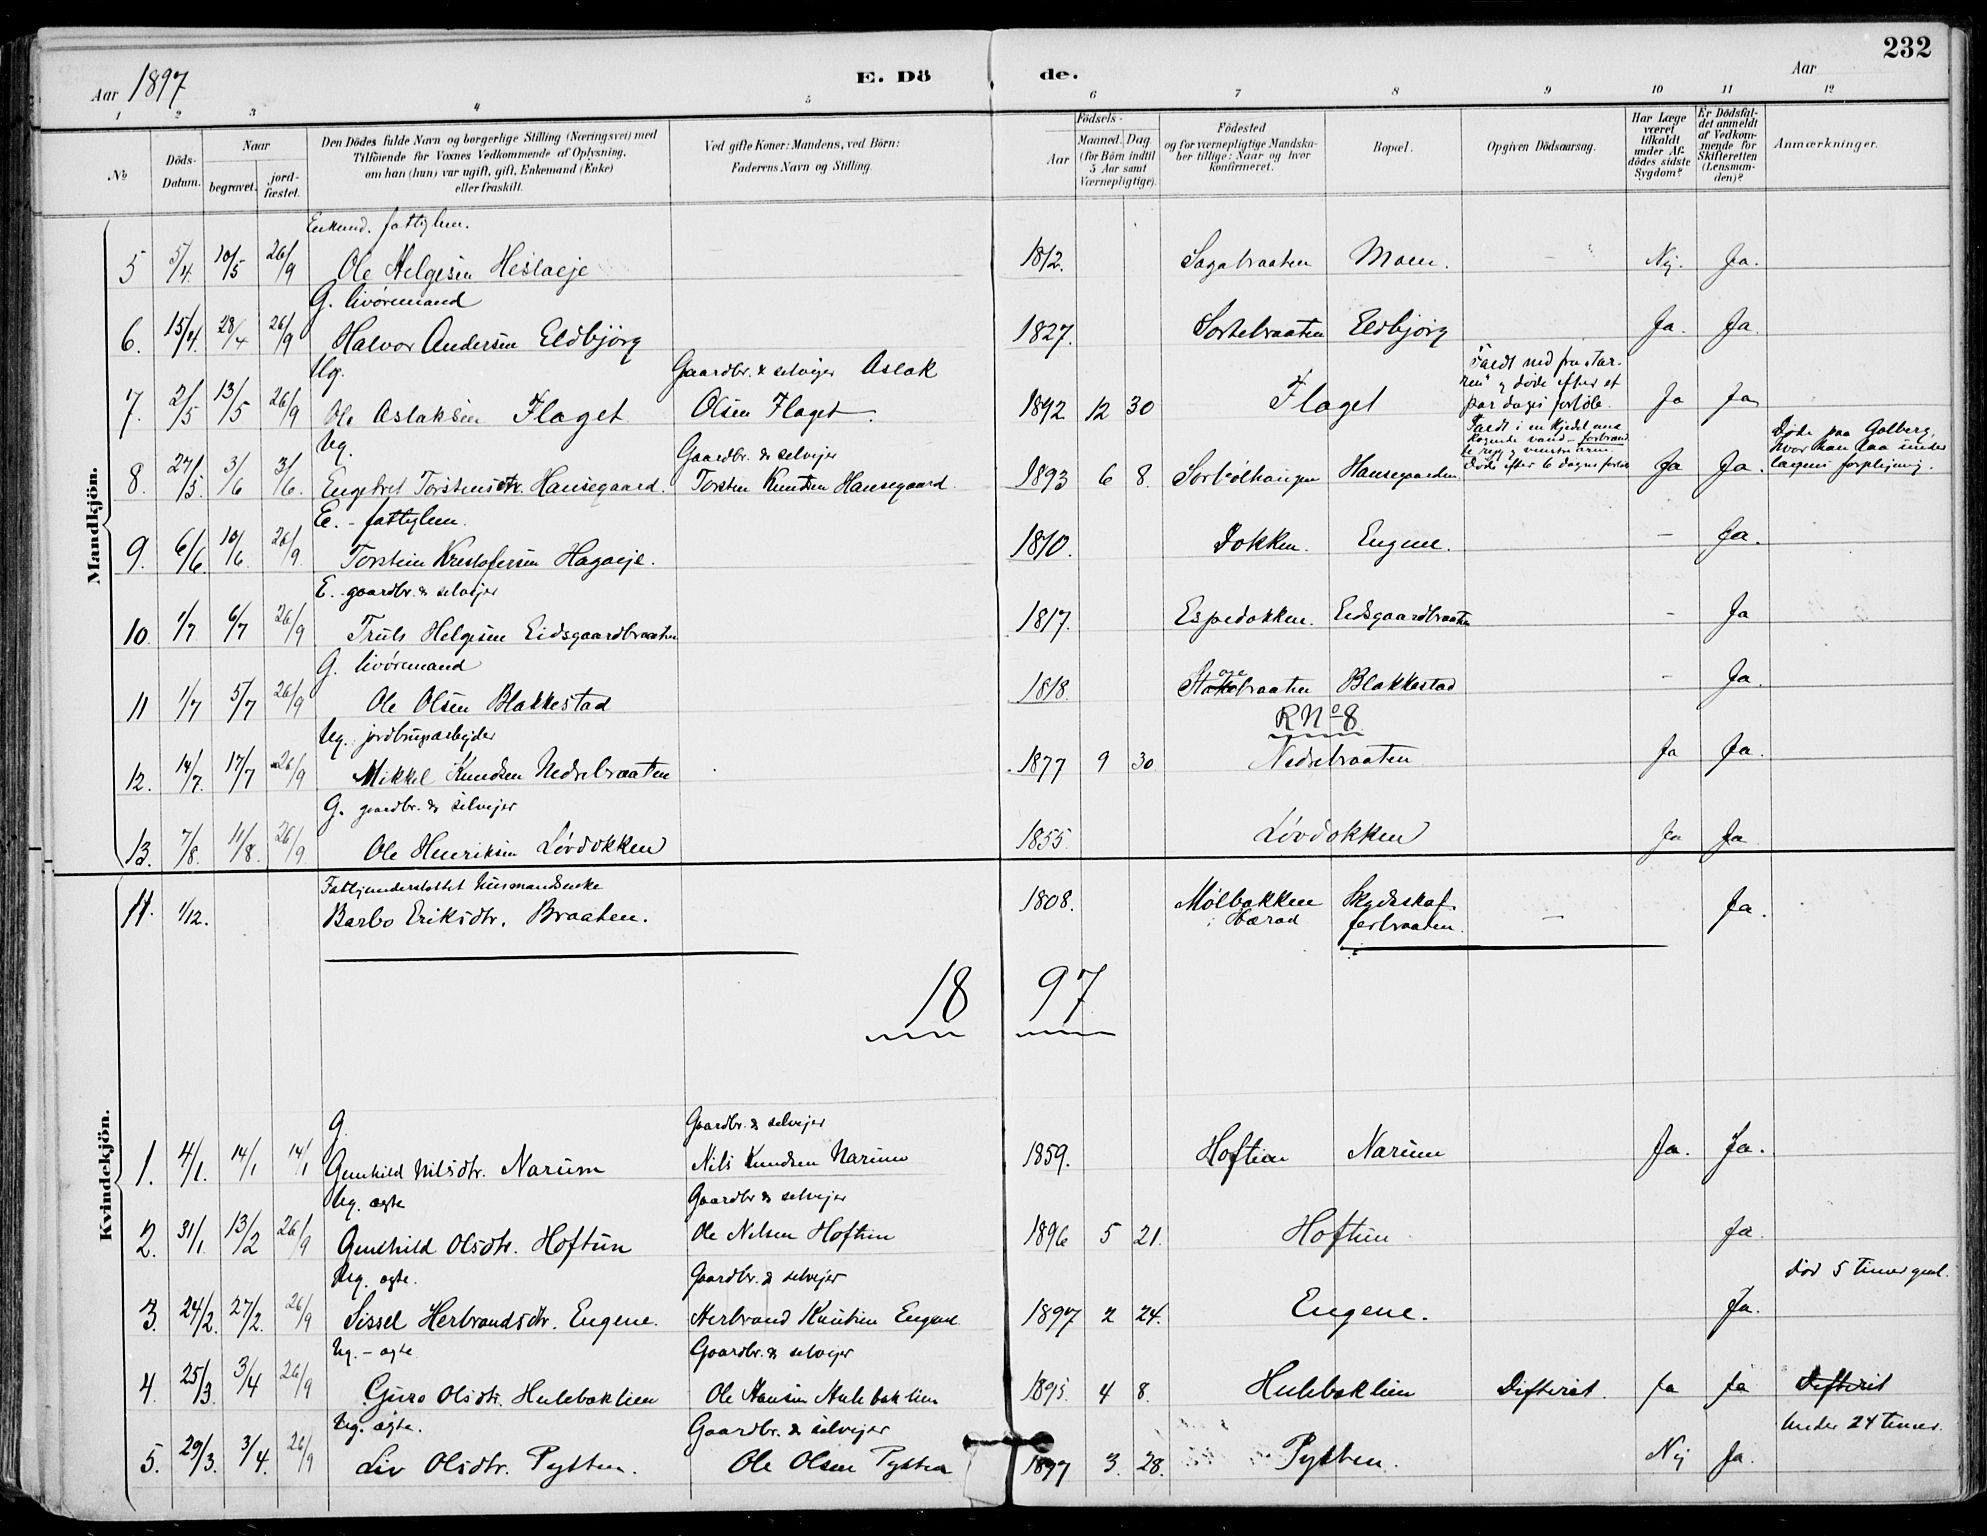 232
Aar 1897
E. Dö de.
Aar
1 2 3 4 5 6 7 8 9 10 11 12
No
Döds-Datum.
Naar
begravet.
jord-fæstet.
Den Dödes fulde Navn og borgerlige Stilling (Næringsvei) med
Tilföiende for Voxnes Vedkommende af Oplysning,
om han (hun) var ugift, gift, Enkemand (Enke)
eller fraskilt.
Ved gifte Koner: Mandens, ved Börn:
Faderens Navn og Stilling.
Födsels-
Aar
Maaned. Dag
(for Börn indtil
5 Aar samt
Værnepligtige).
Födested
og for værnepligtige Mandska-
ber tillige: Naar og hvor
konfirmeret.
Bopæl.
Opgiven Dödsaarsag.
Har Læge
været
tilkaldt
under Af-
dödes sidste
Sygdom?
Er Dödsfal-
det anmeldt
af Vedkom-
mende for
Skifteretten
(Lensman-
den)?
Anmærkninger.
Mandkjön.
Enkemd. fattiglem.
5 5/4. 10/5 26/9 Ole Helgesen Heslaeje 1812. Sagabraaten Moen. Nej. Ja.
G. livøremand
6. 15/4. 28/4 26/9 Halvor Andersen Eldbjörg 1827. Sortebraaten Eldbjörg Ja. Ja.
Ug. Gaardbr. & selvejer Aslak
7. 2/5 13/5 26/9 Ole Aslaksen Flaget Olsen Flaget. 1892 12 30 Flaget
Faldt ned fra "tar-
ren" og døde efter et
par dages forløb. Ja Ja
Ug. Gaardbr. & selvejer
8. 27/5. 3/6 3/6. Engebret Torstensdtr. Hansegaard. Torsten Knudsen Hansegaard. 1893 6 8. Sortølhaugen Hansegaarden
Faldt i en kjedel med
kogende vand - forbrand
te ryg og venstre arm.
Døde efter 6 dages forløb Ja Ja.
Døde paa Golberg,
hvor han laa under
lægens forplejning.
E. - fattiglem.
9. 6/6. 10/6 26/9. Torstein Kristofersen Hagaeje. 1810. Dokken. Engene. - Ja.
E. gaardbr. & selvejer
10. 1/7 6/7 26/9 Truls Helgesen Eidsgaardbraaten 1817. Espedokken. Eidsgaardbraaten - Ja
G. livøremand
11 1/7 5/7 26/9 Ole Olsen Blakkestad 1818. Stakebraaten Blakkestad - Ja.
Ug. jordbrugsarbejder RNo 8
12. 14/7. 17/7 26/9 Mikkel Knudsen Nedrebraaten 1877 9 30. Nedrebraaten Ja Ja.
G. gaardbr. & selvejer
13. 7/8. 11/8. 26/9 Ole Henriksen Løvdokken 1855. Løvdokken Ja Ja
Fattigunderstøttet Husmandsenke
11. 1/12. Barbo Eriksdtr. Braaten. 1808. Mølbakken Skydeskaf-
ferbraaten. - Ja.
18 97
Kvindekjön.
G. Gaardbr. & selvejer
1. 4/1. 14/1 14/1 Gunhild Nilsdtr. Narum Nils Knudsen Narum 1859. Hoftun Narum Ja. Ja.
Ug. ægte Gaardbr & selvejer
2. 31/1. 13/2 26/9 Gunhild Olsdtr. Hoftun Ole Nilsen Hoftun 1896 5 21. Hoftun Ja.
Ug. ægte. Gaardbr. & selvejer død 5 timer gml.
3. 24/2. 27/2. 26/9 Sissel Herbrandsdtr. Engene. Herbrand Knutsen Engene 1897 2 24. Engene. Ja.
Ug. - ægte Gaardbr. & selvejer
4. 25/3 3/4 26/9 Guro Olsdtr. Hulebaklien Ole Hansen Hulebaklien 1895. 4 8. Hulebaklien Difterit. Ja Ja Difterit
Ug. ægte. Gaardbr. & selvejer Under 24 timer.
5. 29/3. 3/4. 26/9 Liv Olsdtr. Pytten. Ole Olsen Pytten 1897 3. 28. Pytten. Nej Ja.